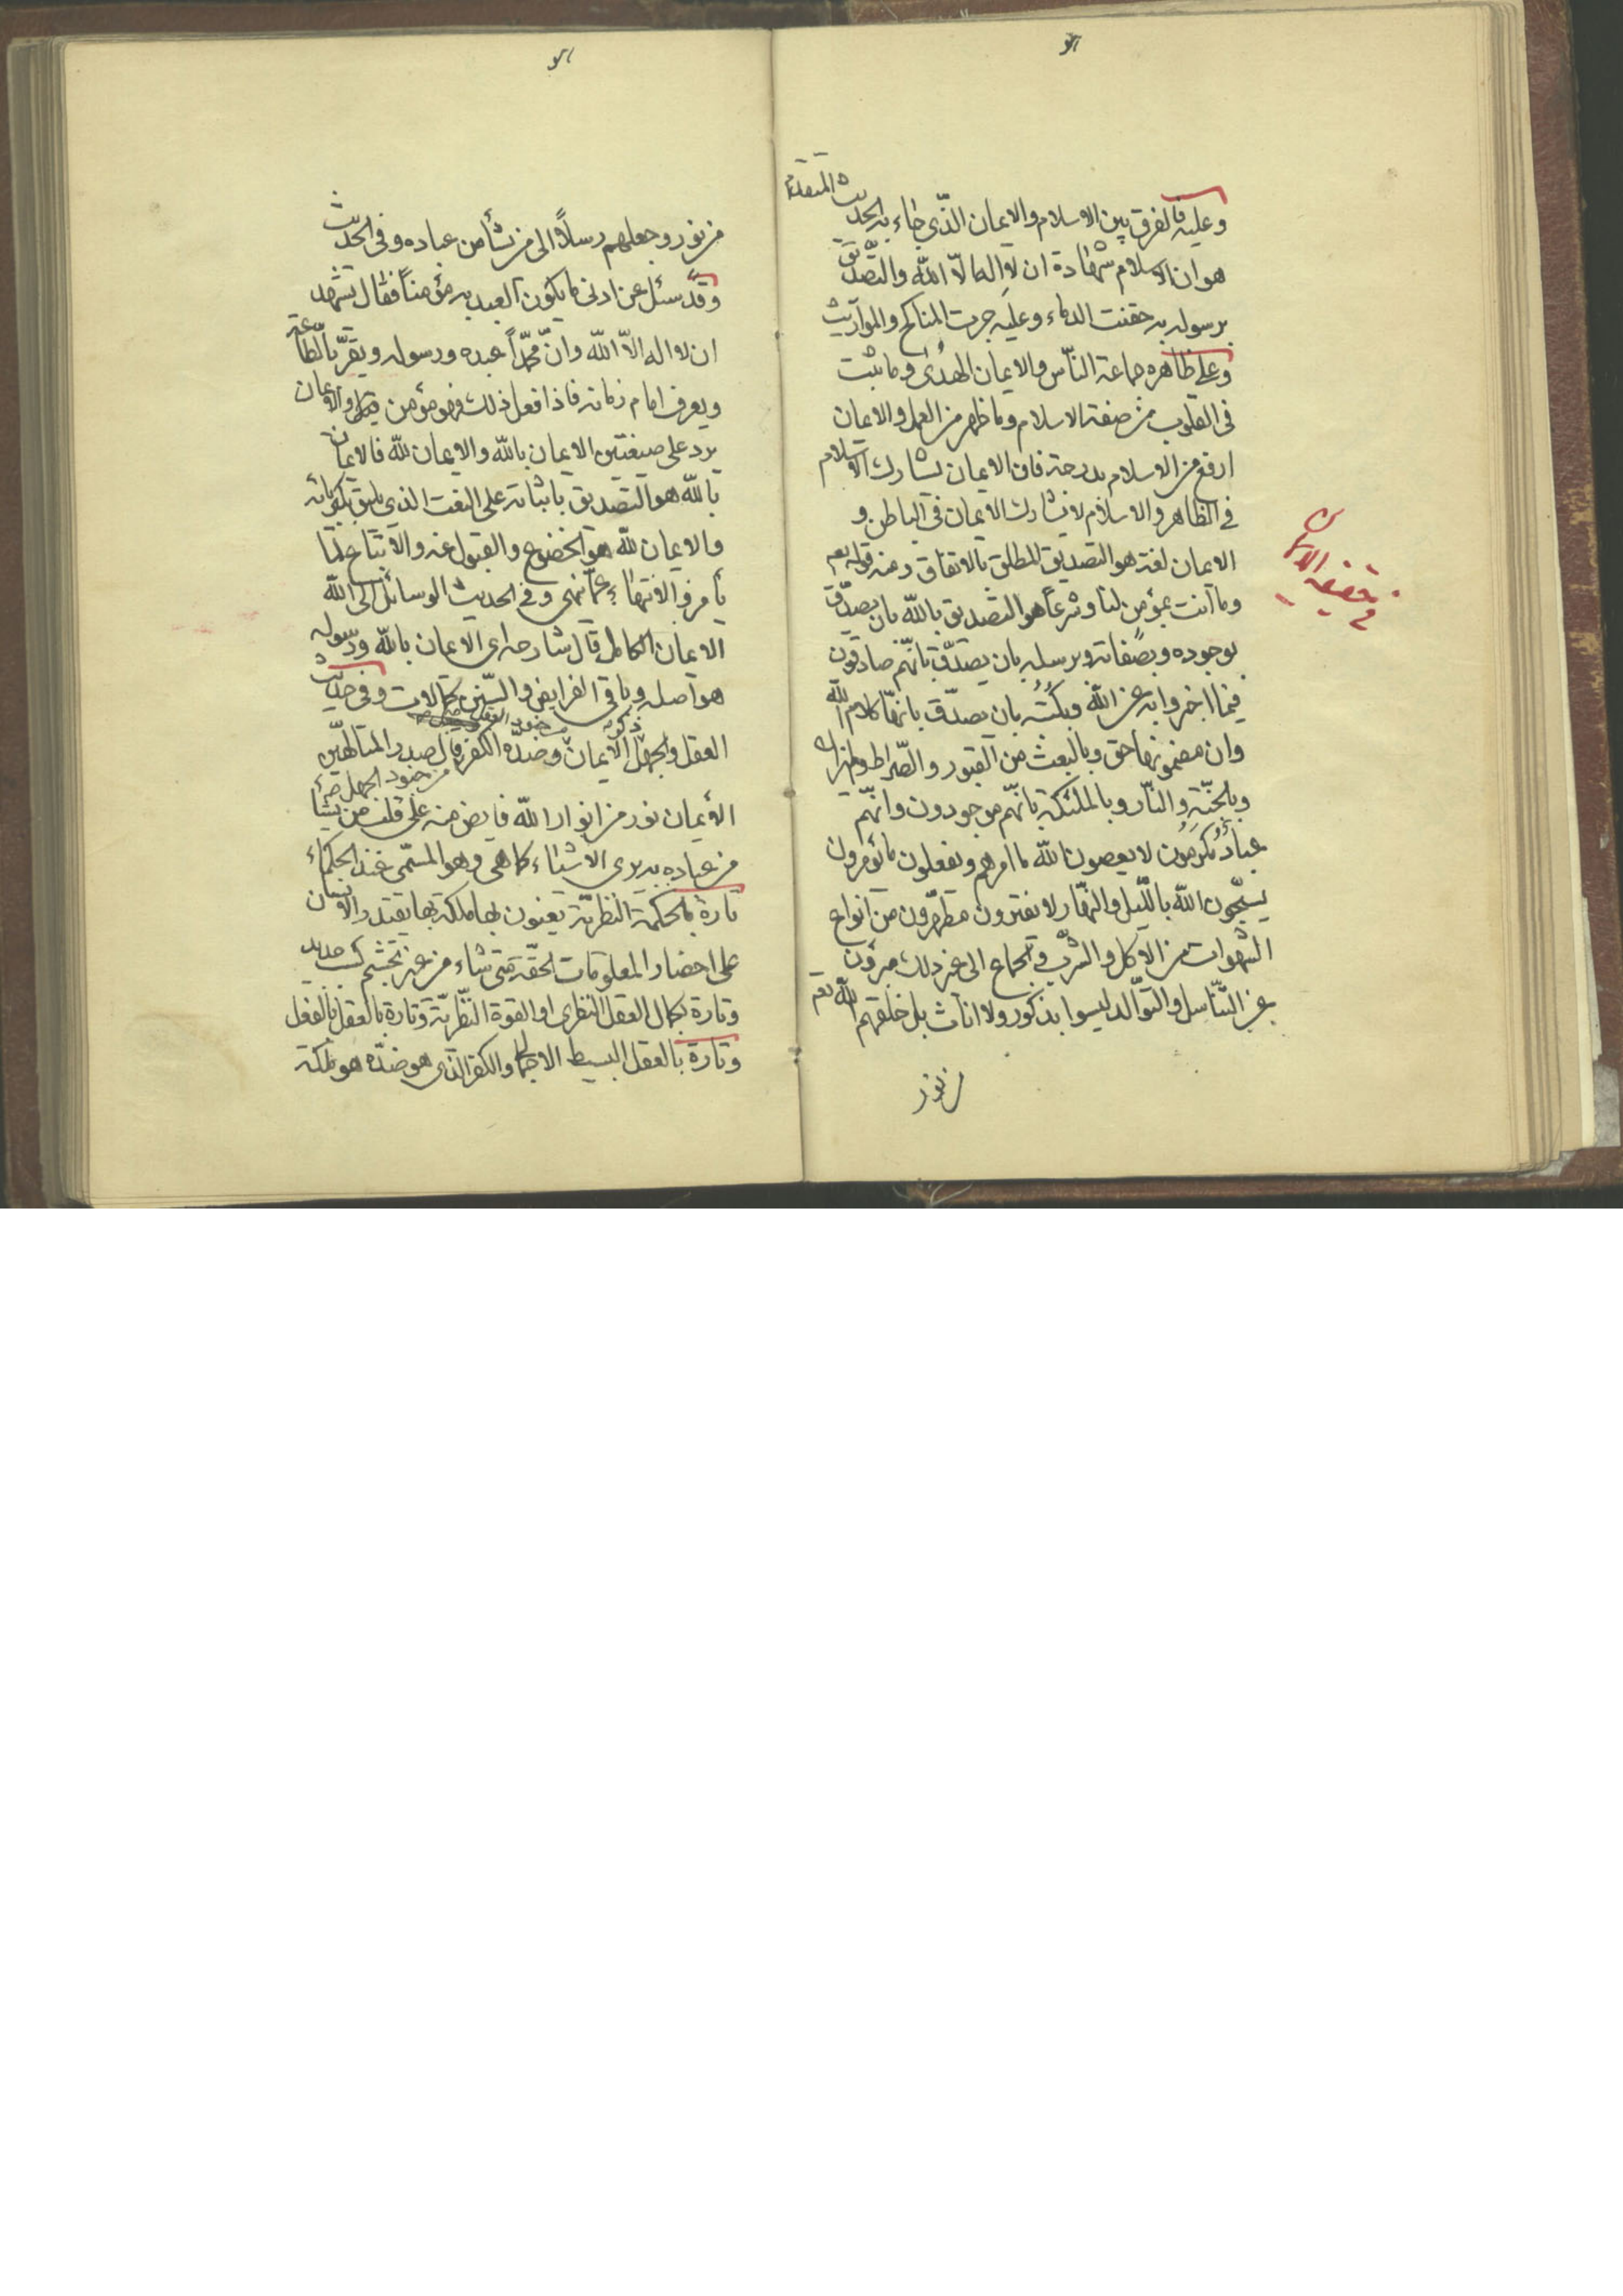 وعليه فالفرق بين الاسلام والايمان الذي جاء به الحديث المتقدم
هو ان الاسلام شهادة ان لا اله الا الله والتصديق
برسوله به حقنت الدماء وعليه جرت المناكح والمواريث
وعلى ظاهره جماعة الناس والايمان الهدى وما يثبت
فى القلوب من صفة الاسلام وما ظهر من العمل والايمان
ارفع من الاسلام بدرجة فان الايمان يشارك الاسلام
فى الظاهر والاسلام لا يشارك الايمان فى الباطن و
الايمان لغة هو التصديق المطلق بالاتفاق ومنه قوله تعم
وما انت بمؤمن لنا وشرعاً هو التصديق بالله بان يصدّق
بوجوده وبصفاته وبرسله بان يصدّق بانهم صادقون
فيما اخبروا به عن الله وبكتبه بان يصدّق بانها كلام الله
وان مضمونها حق وبالبعث من القبور والصراط والميزان
وبالجنّة والنار وبالملئكة بانهم موجودون وانهم
عبادٌ مُكرَمُون لا يعصون الله ما امرهم ويفعلون ما يؤمرون
يسبّحون الله بالليل والنهار لا يفترون مطهّرون من انواع
الشهوات من الاكل والشرب والجماع الى غير ذلك مبرؤن
عن التناسل والتوالد ليسوا بذكور ولا اناث بل خلقهم الله تعم
من نور
فى حقيقة الايمان
من نور وجعلهم رسلاً الى من يشأ من عباده وفى الحديث
وقد سئل عن ادنى ما يكون العبد به مؤمناً فقال يشهد
ان لا اله الا الله وانّ محمّداً عبده ورسوله ويقرّ بالطاعة
ويعرف امام زمانه فاذا فعل ذلك فهو مؤمن والايمان
يرد على صيغتين الايمان بالله والايمان لله فالايمان
بالله هو التصديق باثباته على النعت الذى يليق بكبريائه
والايمان لله هو الخضوع والقبول عنه والاتباع لما
يأمر والانتهاء عمّا نهى وفى الحديث الوسائل الى الله
الايمان الكامل قال شارحه اى الايمان بالله ورسوله
هو اصله وباقى الفرايض والسنن كمالات وفى حديث
العقل والجهل ذكر انه الايمان من جنود العقل وضدّه الكفر قال صدر المتالهين
من جنود الجهل
الأيمان نور من انوار الله فايض منه على قلب من يشأ
من عباده به يرى الاشياء كما هى وهو المسمّى عند الحكماء
تارة بالحكمة النظرية يعنون بها ملكة بها يقتدر الانسان
على احضار المعلومات الحقة متى شاء من غير تجشم كسب جديد
وتارة بكمال العقل النظرى او القوة النظرية وتارة بالعقل بالفعل
وتارة بالعقل البسيط الاجمالى والكفر الذى هو ضدّه هو ملكة